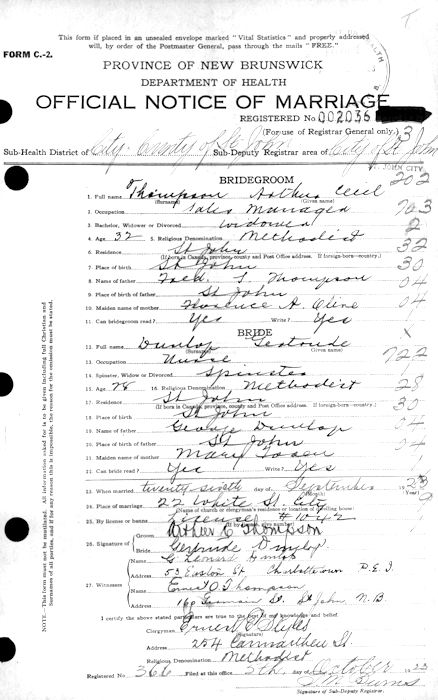 This form if placed in an unsealed envelope marked "Vital Statistics" and properly addressed
will, by order of the Postmaster General, pass through the mails "FREE."
FORM C.-2.
PROVINCE OF NEW BRUNSWICK
DEPARTMENT OF HEALTH
OFFICIAL NOTICE OF MARRIAGE
REGISTERED No 002036
(For use of Registrar General only.) 3
Sub-Health District of City County of St John Sub-Deputy Registrar area of City of St John
ST. JOHN CITY
BRIDEGROOM 202
1. Full name Thompson Arthur Cecil
(Surname) (Given name)
2. Occupation Sales Manager 703
3. Bachelor, Widower or Divorced widower 2
4. Age 32 5. Religious Denomination Methodist
6. Residence St John 32
(If born in Canada, province, county and Post Office address. If foreign-born—country.)
7. Place of birth St John 30
8. Name of father Fred S Thompson 04
9. Place of birth of father St John
10. Maiden name of mother Florence A. Cline 04
11. Can bridegroom read? Yes Write? Yes 1
BRIDE
12. Full name Dunlop Gertrude
(Surname) (Given name)
13. Occupation Nurse 722
14. Spinster, Widow or Divorced Spinster
15. Age 28 16. Religious Denomination Methodist 28
17. Residence St John 30
(If born in Canada, province, county and Post Office address. If foreign-born—country.)
18. Place of birth St John 04
19. Name of father George Dunlop
20. Place of birth of father St John 04
21. Maiden name of mother Mary
22. Can bride read? Yes Write? Yes 1
23. When married twenty sixth day of September 1923
(Month)
24. Place of marriage 22 White St. City
(Name of church or clergyman's residence or location of dwelling house)
25. By license or banns License # 1042
26. Signature of
Groom Arthur C Thompson
Bride Gertrude Dunlop
27. Witnesses
G Leonard
Address 53 Euston St Charlottetown P.E.I
Ernest O Thompson
Address 160 Germain St. St John N.B.
I certify the above stated particulars are true to the best of my knowledge and belief.
Clergyman Ernest E Styles
(Signature)
Address 254 Carmarthen St.
Religious Denomination Methodist
Registered No. 366 Filed at this office 3rd day of October 1923
Signature of Sub-Deputy Registrar.
NOTE.—This form must not be mutilated. All information asked for is to be given including full Christian and Surnames of all parties, and if any of this is impossible, the reason for the omission must be stated.